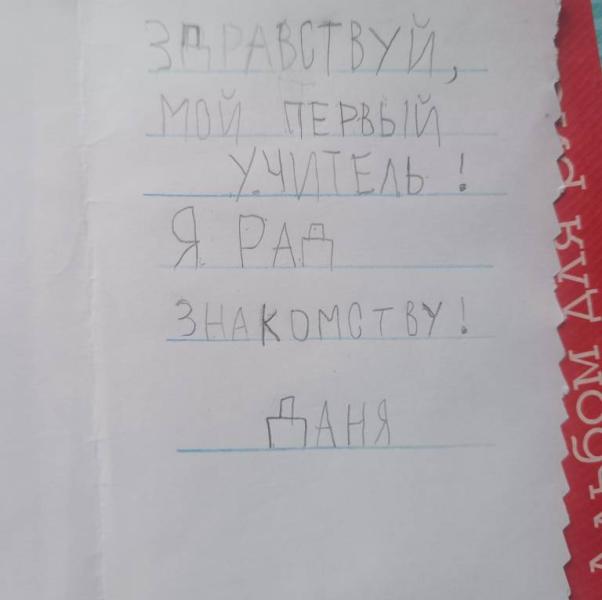 ЗДРАВСТВУЙ,
МОЙ ПЕРВЫЙ
УЧИТЕЛЬ!
Я РАД
ЗНАКОМСТВУ!
ДАНЯ
АЛЬБОМ ДЛЯ